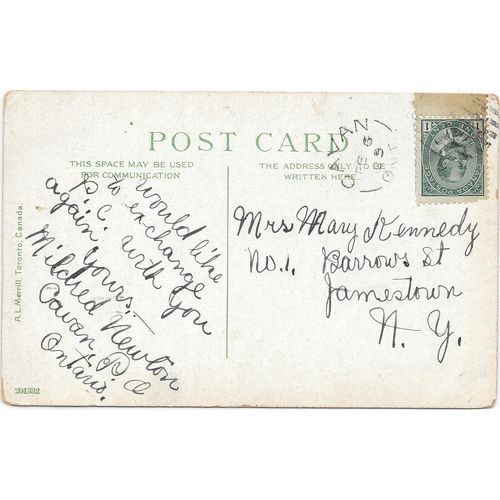 POST CARD
THIS SPACE MAY BE USED
FOR COMMUNICATION.
THE ADDRESS ONLY TO BE
WRITTEN HERE.
would like
to exchange
P. C. with you
again yours.
Mildred Newton
Cavan P.O
Ontario.
Mrs Mary Kennedy
No. 1. Barrows St
Jamestown
N. Y.
CAVAN
ONT
A.L. Merrill, Toronto, Canada.
201832
1 1